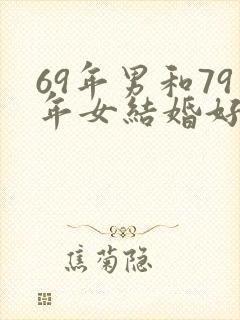 69年男和79
年女結婚好
焦菊隐